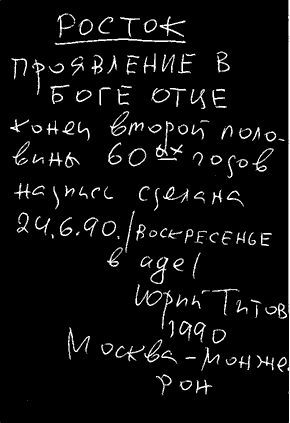 РОСТОК
ПРОЯВЛЕНИЕ В
БОГЕ ОТЦЕ
конец второй поло-
вины 60ых годов
надпись сделана
24.6.90./ВОСКРЕСЕНЬЕ
в аде/
Юрий Титов
1990
Москва-Монже-
рон